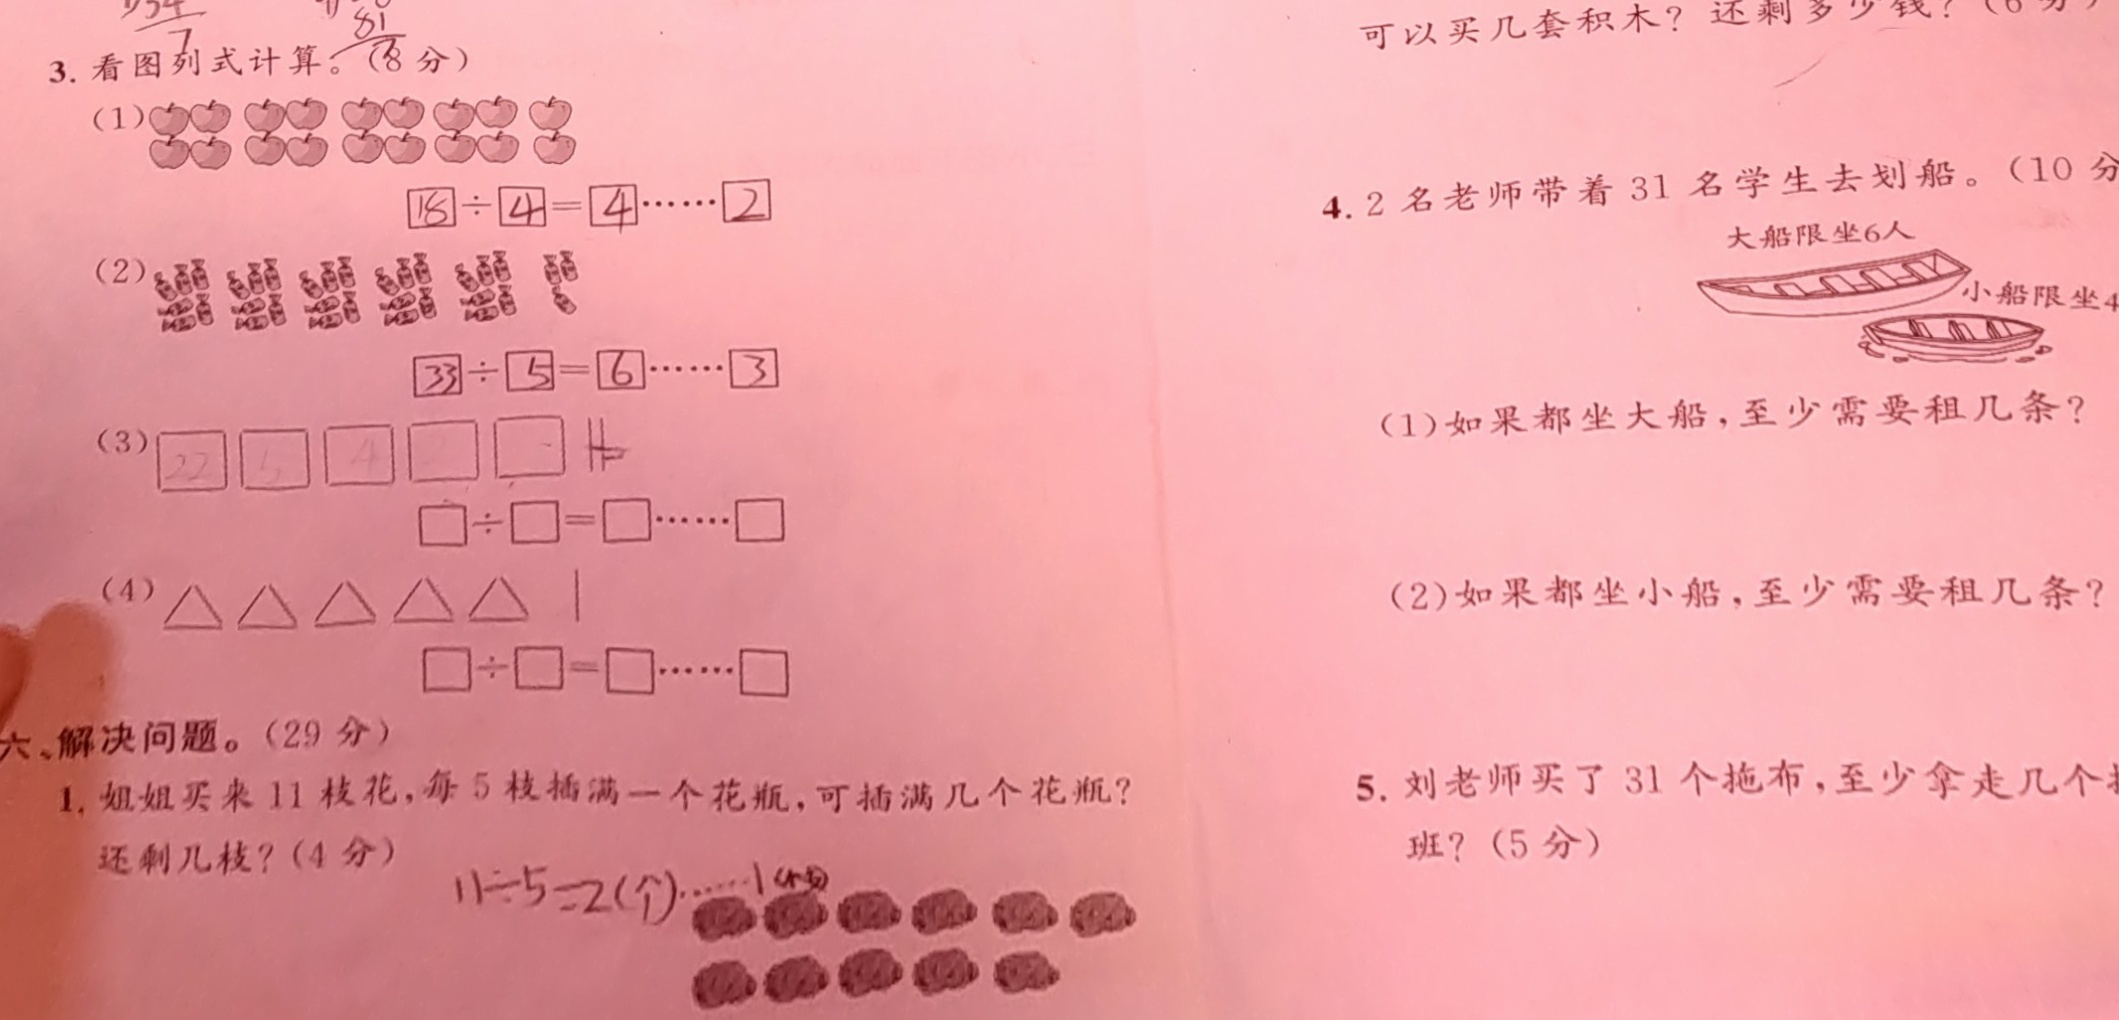 81
7
3. 看图列式计算。(8 分)
(1)
18÷4=4……2
(2)
33÷5=6……3
(3)
22 5 4
□÷□=□……□
(4)
□÷□=□……□
六、解决问题。(29 分)
1. 姐姐买来 11 枝花,每 5 枝插满一个花瓶,可插满几个花瓶?
还剩几枝?(4 分)
11÷5=2(个)……1
可以买几套积木? 还剩多少钱? (6 分)
4. 2 名老师带着 31 名学生去划船。(10 分
大船限坐6人
小船限坐4
(1)如果都坐大船,至少需要租几条?
(2)如果都坐小船,至少需要租几条?
5. 刘老师买了 31 个拖布,至少拿走几个
班? (5 分)